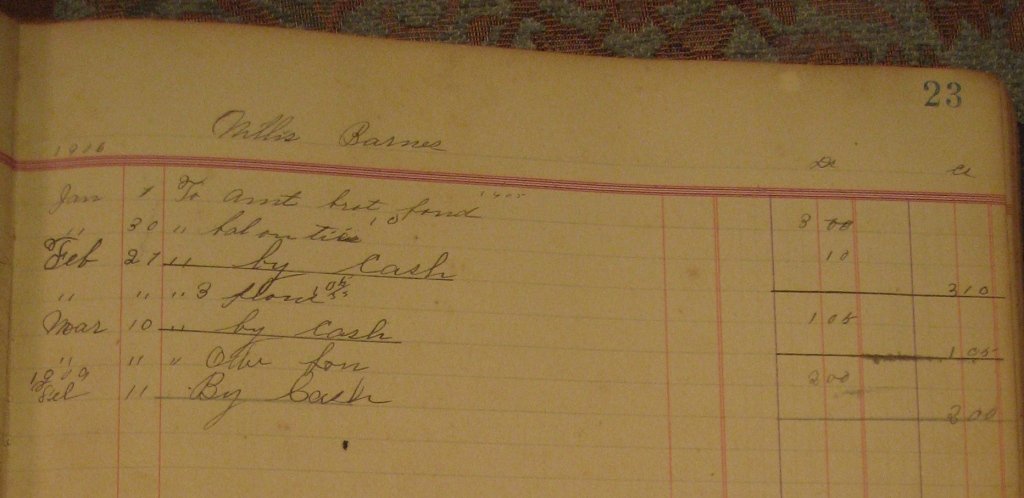 23
Willis Barnes
1906 Dr Cr
Jan 1 To Amt brot ford 3 00
" 30 " bal on 10 10
Feb 27 " by Cash 3 10
" " " 3 flour 1 05
Mar 10 " by Cash 1 05
" " " 2 00
1909
11 By Cash 2 00